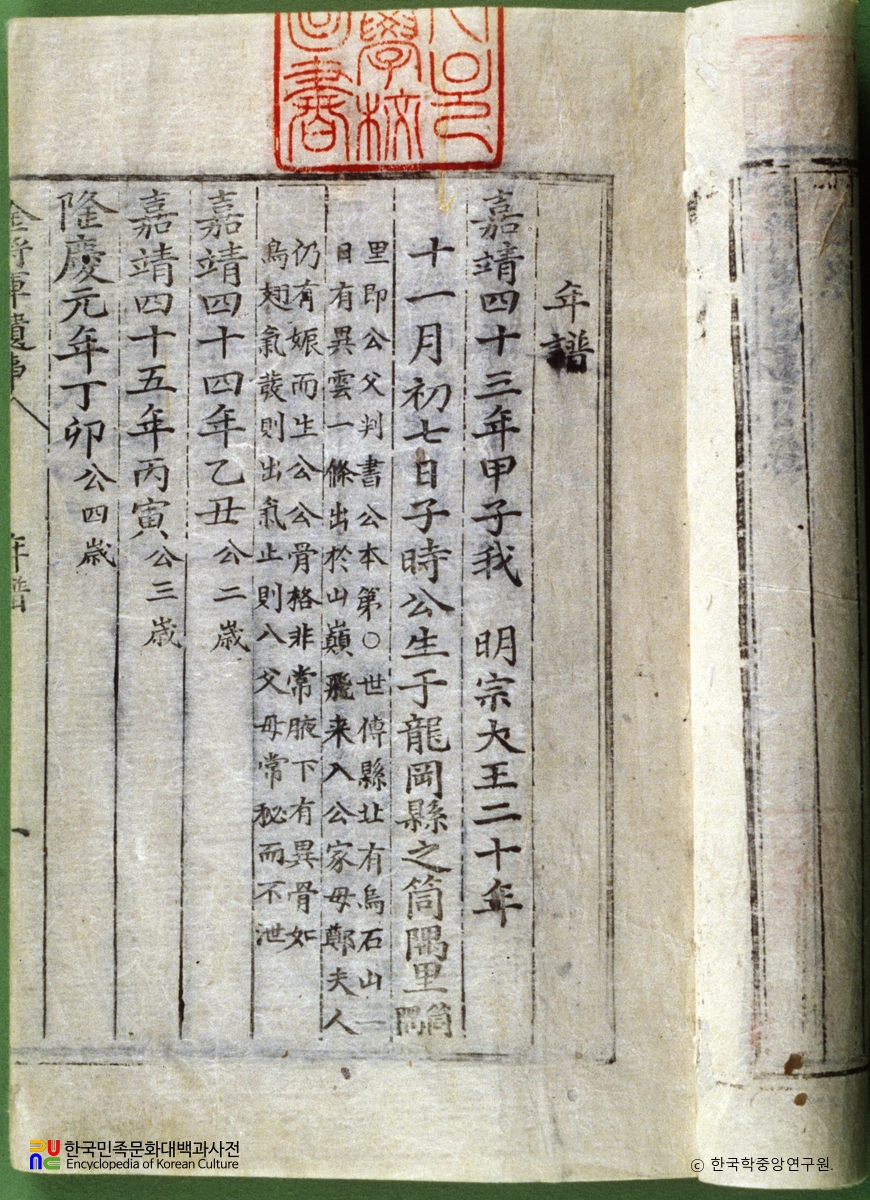 年譜
嘉靖四十三年甲子我 明宗大王二十年
十一月初七日子時公生于龍岡縣之筒隅里筒隅
里即公父判書公本第○世傳縣北有烏石山一
日有異雲一條出於山巔飛来入公家母鄭夫人
仍有娠而生公公骨格非常腋下有異骨如
鳥翅氣發則出氣止則入父母常秘而不泄
嘉靖四十四年乙丑公二歲
嘉靖四十五年丙寅公三歲
隆慶元年丁卯公四歲
金將軍遺事 年譜 一
學校
書
한국민족문화대백과사전
Encyclopedia of Korean Culture
ⓒ 한국학중앙연구원.